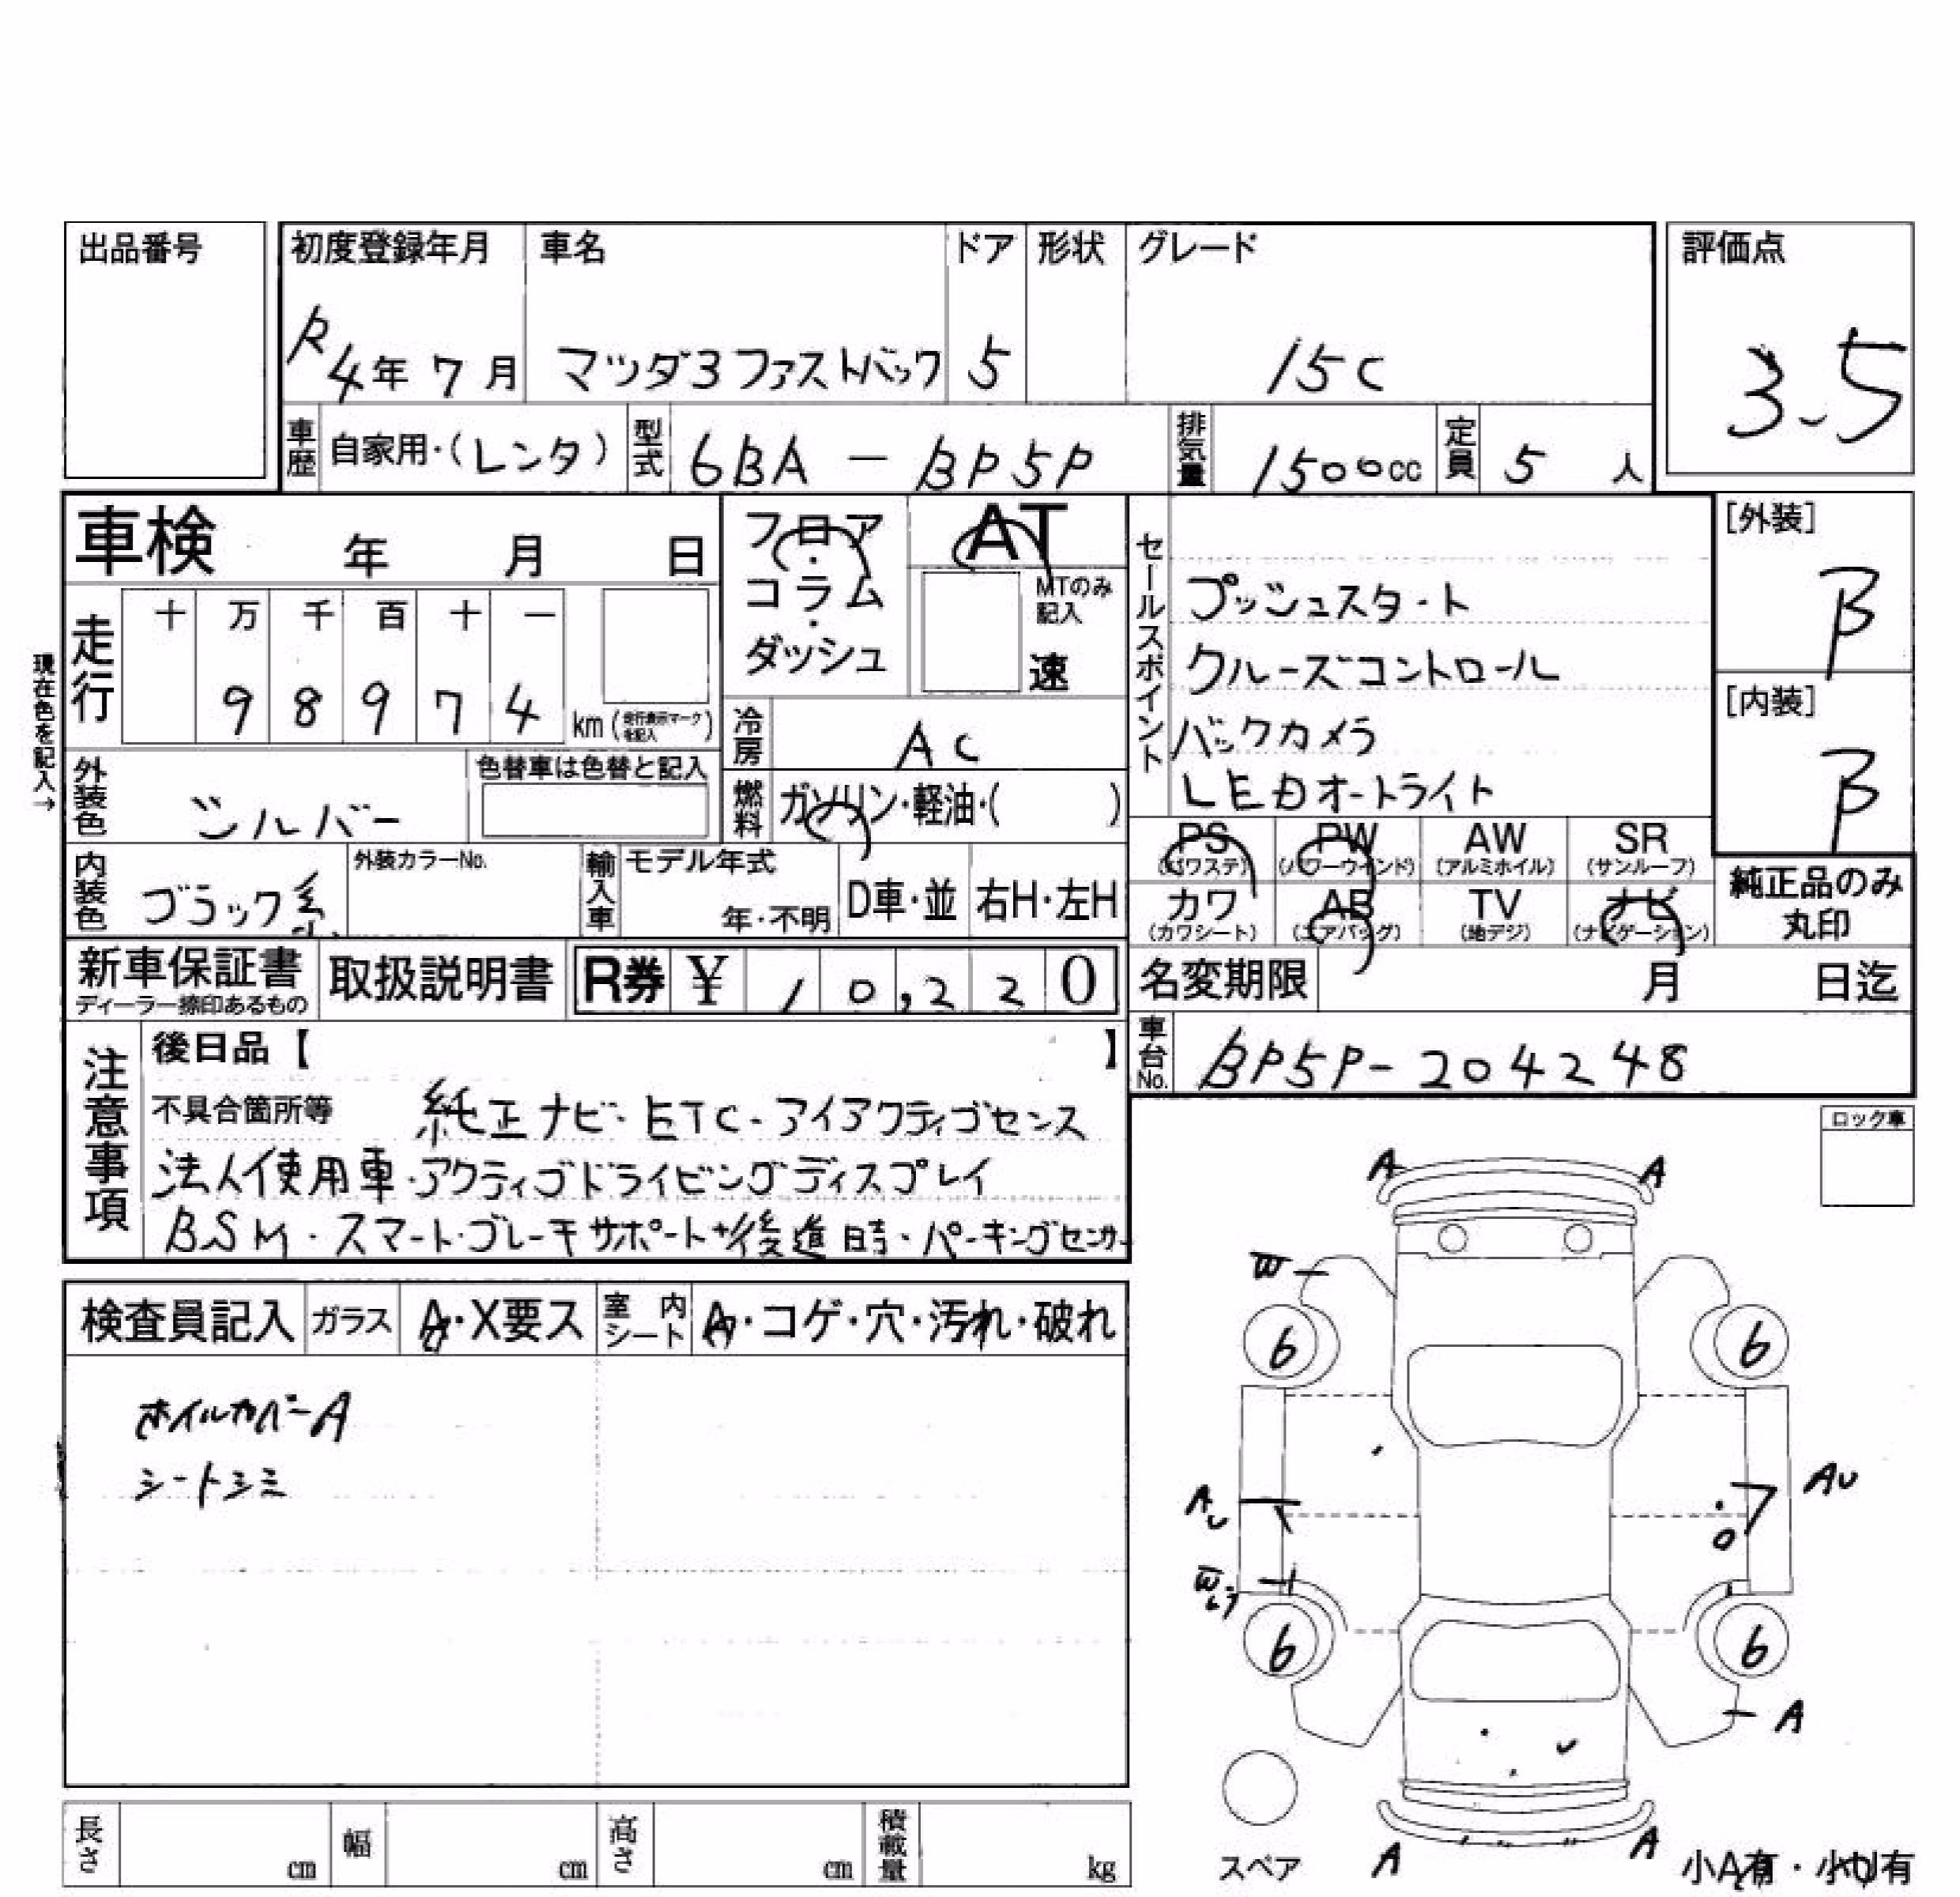 出品番号
初度登録年月 車名 ドア 形状 グレード 評価点
R4年7月 マツダ3ファストバック 5 15C 3.5
車歴 自家用・(レンタ) 型式 6BA-BP5P 排気量 1500cc 定員 5人
車検 年 月 日
フロア・コラム・ダッシュ
AT
MTのみ記入
速
セールスポイント
プッシュスタート
クルーズコントロール
バックカメラ
LEDオートライト
[外装]
B
[内装]
B
現在色を記入→
走行 十 万 千 百 十 一
9 8 9 7 4 km(走行表示マークを記入)
冷房 AC
外装色 シルバー 色替車は色替と記入
燃料 ガソリン・軽油・( )
PS (パワステ) PW (パワーウインド) AW (アルミホイル) SR (サンルーフ)
カワ (カワシート) AB (エアバッグ) TV (地デジ) ナビ (ナビゲーション)
純正品のみ丸印
内装色 ブラック系 外装カラーNo. 輸入車 モデル年式 年・不明 D車・並 右H・左H
新車保証書 ディーラー捺印あるもの 取扱説明書 R券 ¥ 10,220
名変期限 月 日迄
車台No. BP5P-204248
注意事項
後日品【 】
不具合箇所等 純正ナビ・ETC・アイアクティブセンス
法人使用車・アクティブドライビングディスプレイ
BSM・スマート・ブレーキサポート 後進時・パーキングセンサー
ロック車
検査員記入 ガラス A・X要ス 室内シート A・コゲ・穴・汚れ・破れ
ホイルカバーA
シートシミ
A A
W
6 6
AU
AU
W
6 6
A
A A
スペア
小A有・小U有
長さ cm 幅 cm 高さ cm 積載量 kg